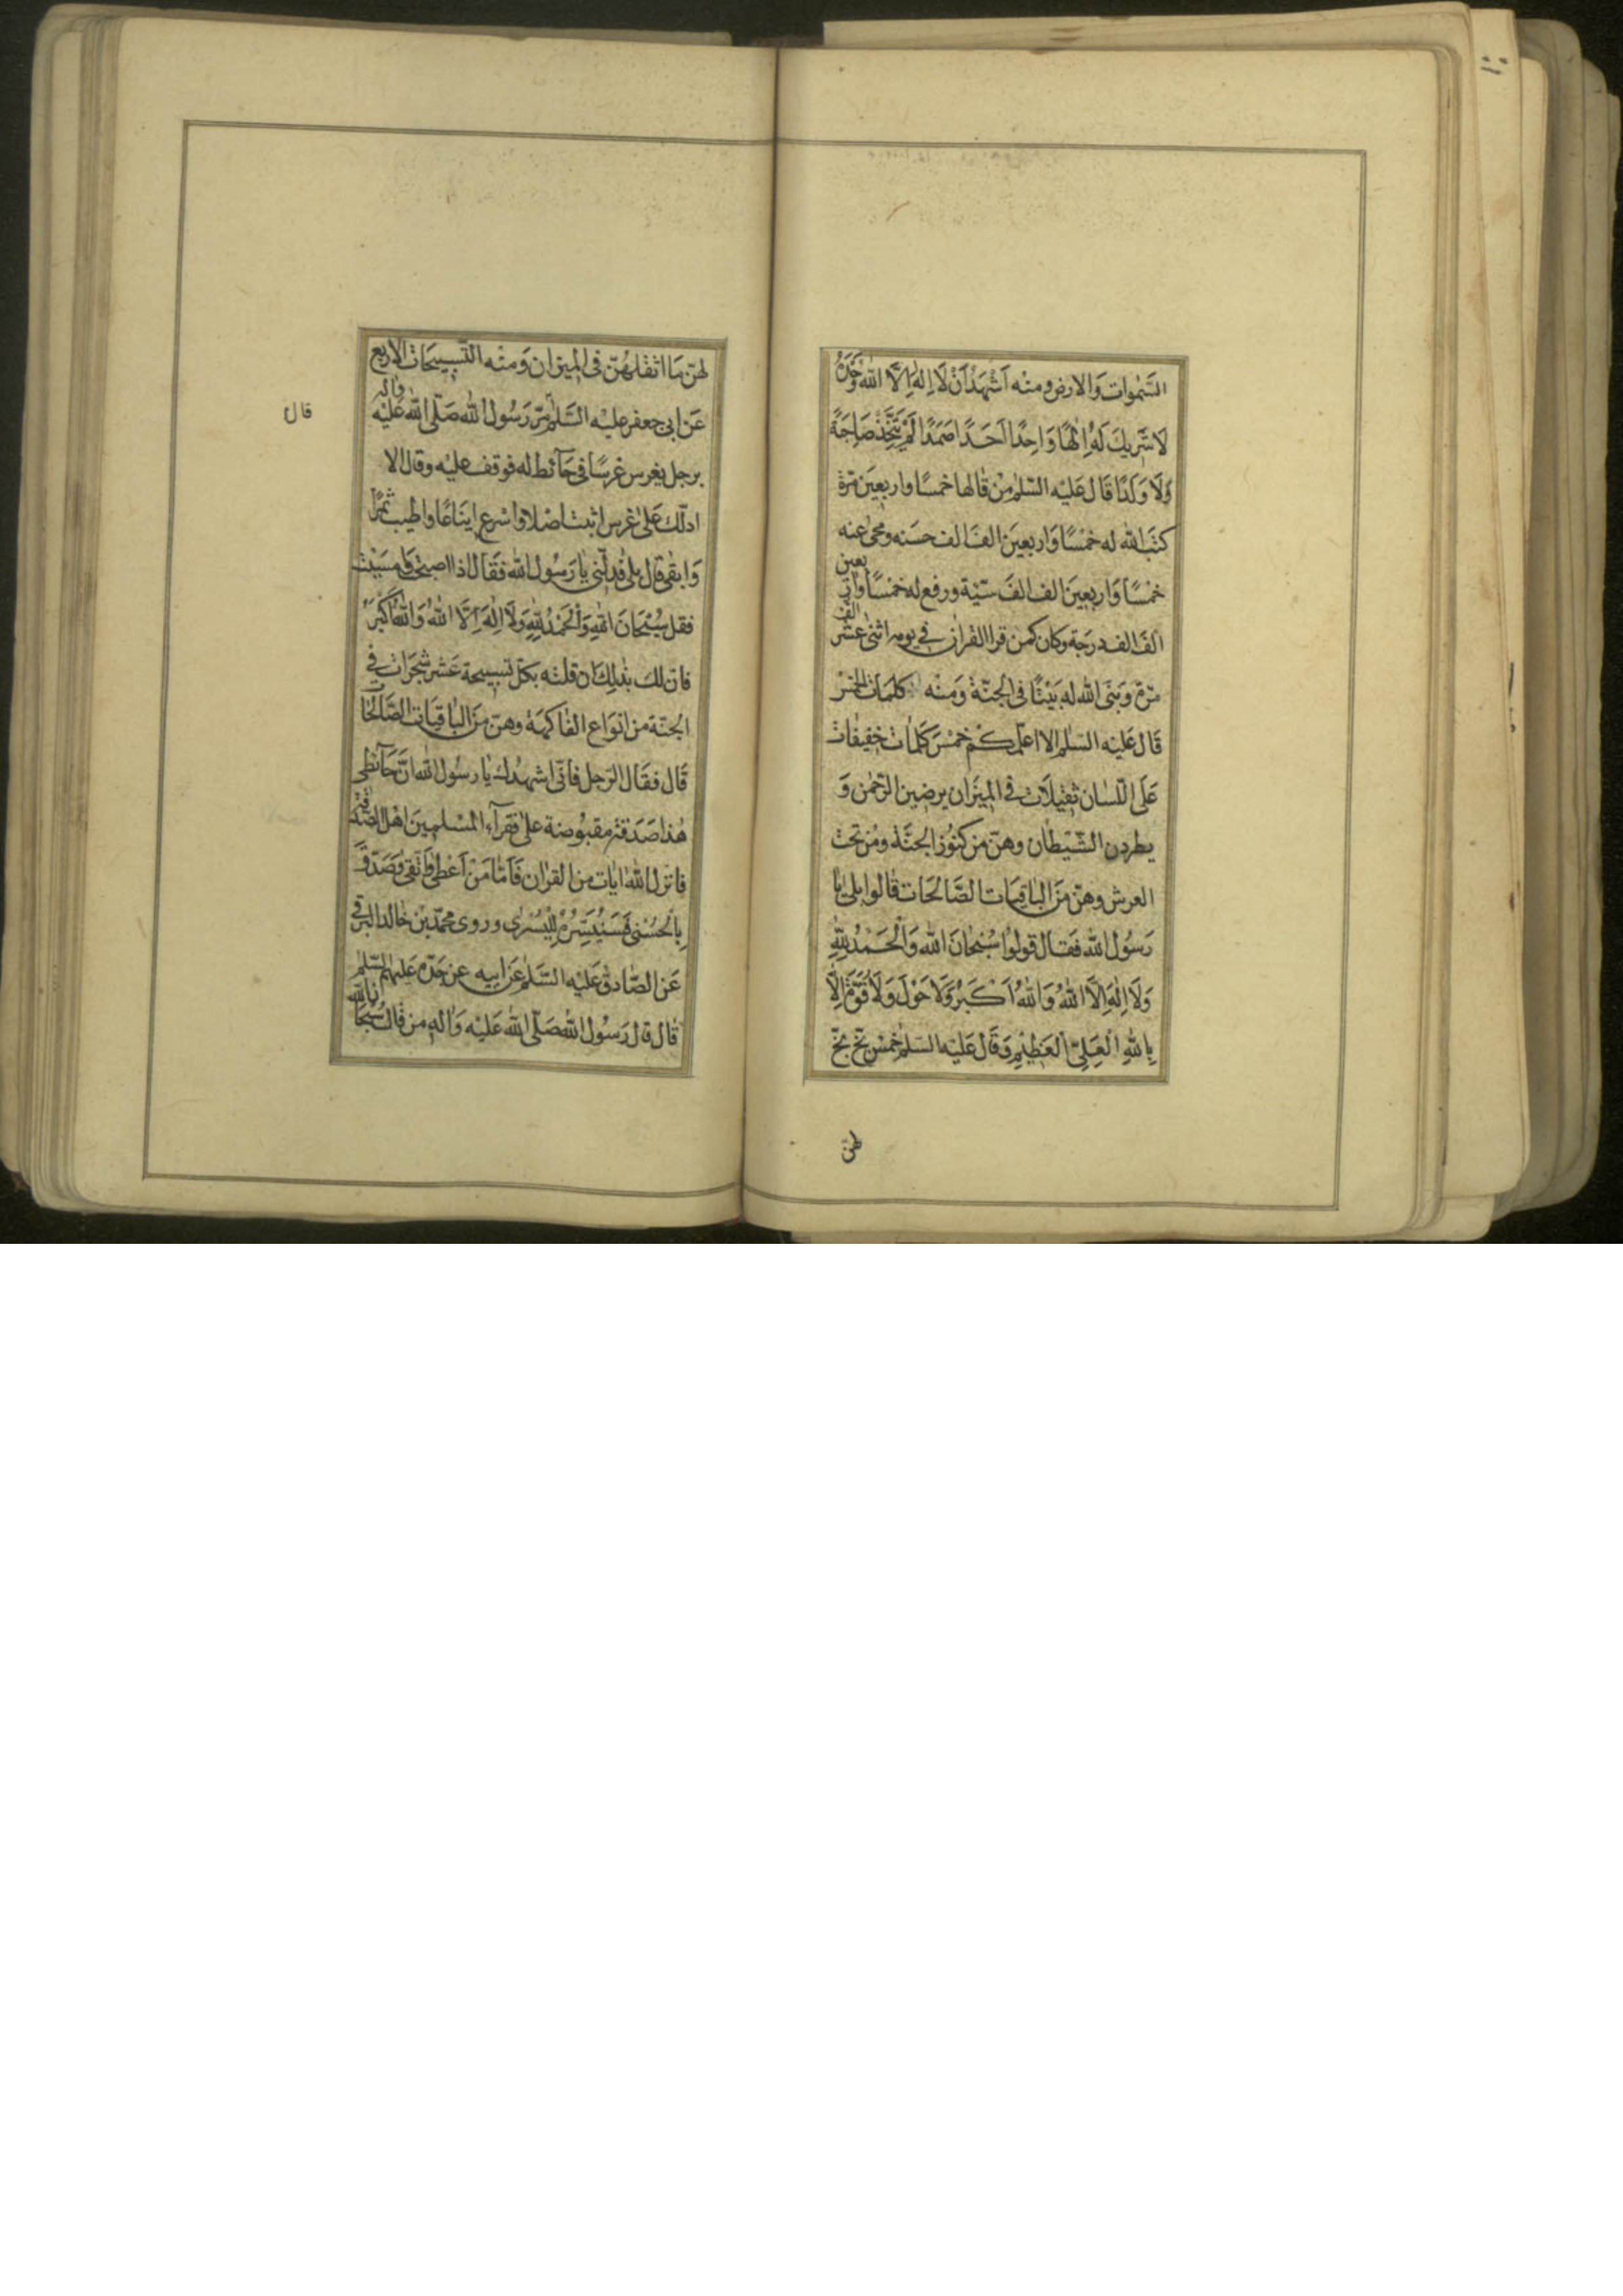 السّمٰوات وَالارض ومنه اَشْهَدُ اَنْ لَا اِلٰهَ اِلَّا اللّٰه وَحْدَهُ
لَا شَريكَ لَهُ اِلٰهًا وَاحِدًا اَحَدًا صَمَدًا لَمْ يَتَّخِذْ صَاحِبَةً
وَلَا وَلَدًا قَالَ عَلَيْه السّلٰم مَنْ قالها خمسًا واربعينَ مرّة
كتبَ اللّٰه له خمْسًا وَاربعينَ الفَ الف حسَنه ومحىٰ عنه
خمْسًا وَاربعينَ الف الفَ سيّئة ورفع له خمْسًا واربعين
الفَ الف درجَة وكان كمن قرا القراٰن فى يومه اثنىٰ عشر الف
مرّة وَبنَى اللّٰه له بَيْتًا فى الجنّة وَمنْه كلمات الخمس
قَالَ عَليْه السّلٰم الا اعلّمكم خمْسَ كَلمات خفيفات
عَلَى اللّسان ثقيلَات فى الميزان يرضين الرّحمٰن وَ
يطردن الشّيْطان وهنّ من كنُوز الجنَّة ومن تحت
العرش وهنّ منَ الباقيَات الصَّالحَات قالوا بلىٰ يا
رَسُول اللّٰه فقال قولوا سُبْحَانَ اللّٰه وَالْحَمْدُ لِلّٰهِ
وَلَا اِلٰهَ اِلَّا اللّٰهُ وَاللّٰهُ اَكْبَرُ وَلَا حَوْلَ وَلَا قُوَّةَ اِلَّا
بِاللّٰهِ الْعَلِىِّ الْعَظِيْمِ وَقَالَ عَليْه السّلٰم خمْس بَخّ بخّ
لهنّ
لهنّ مَا اثقلهُنّ فى الميزان وَمنْه التّسبيحَات الاربع
عَن ابى جعفر عليْه السَّلٰم مرّ رَسُول اللّٰه صَلّى اللّٰه عَليْه واٰله
برجل يغرس غرسًا فى حَآئط له فوقف عليْه وقال الا
ادلّك عَلىٰ غرس اثبت اصْلا واسْرع ايناعًا واطيب ثمرًا
وَابقىٰ قال بلىٰ فدلّنى يا رَسُول اللّٰه فقال اذا اصبحْت وامسَيْت
فقل سُبْحَانَ اللّٰهِ وَالْحَمْدُ لِلّٰهِ وَلَا اِلٰهَ اِلَّا اللّٰهُ وَاللّٰهُ اَكْبَرُ
فانّ لك بذلك ان قلته بكلّ تسبيحة عَشر شجَرَات فى
الجنّة من انوَاع الفاكهة وهنّ منَ الباقيَات الصَّالحات
قَال فقال الرّجل فانّى اشهدُك يا رسُول اللّٰه انّ حَآئطى
هٰذا صَدَقة مقبُوضة علىٰ فقرآء المسْلمينَ اهْل الصّدقة
فانزل اللّٰه اٰيات من القراٰن فَاَمَّا مَنْ اَعْطىٰ وَاتَّقىٰ وَصَدّقَ
بِالْحُسْنٰى فَسَنُيَسِّرُهُ لِلْيُسْرىٰ وروى محمّد بْن خالد البرقى
عَن الصّادق عَليْه السَّلٰم عَن ابيه عن جَدّه عَليهم السّلٰم
قال قال رَسُول اللّٰه صَلّى اللّٰه عَليْه وَاٰله من قال سُبْحَان اللّٰه
قال